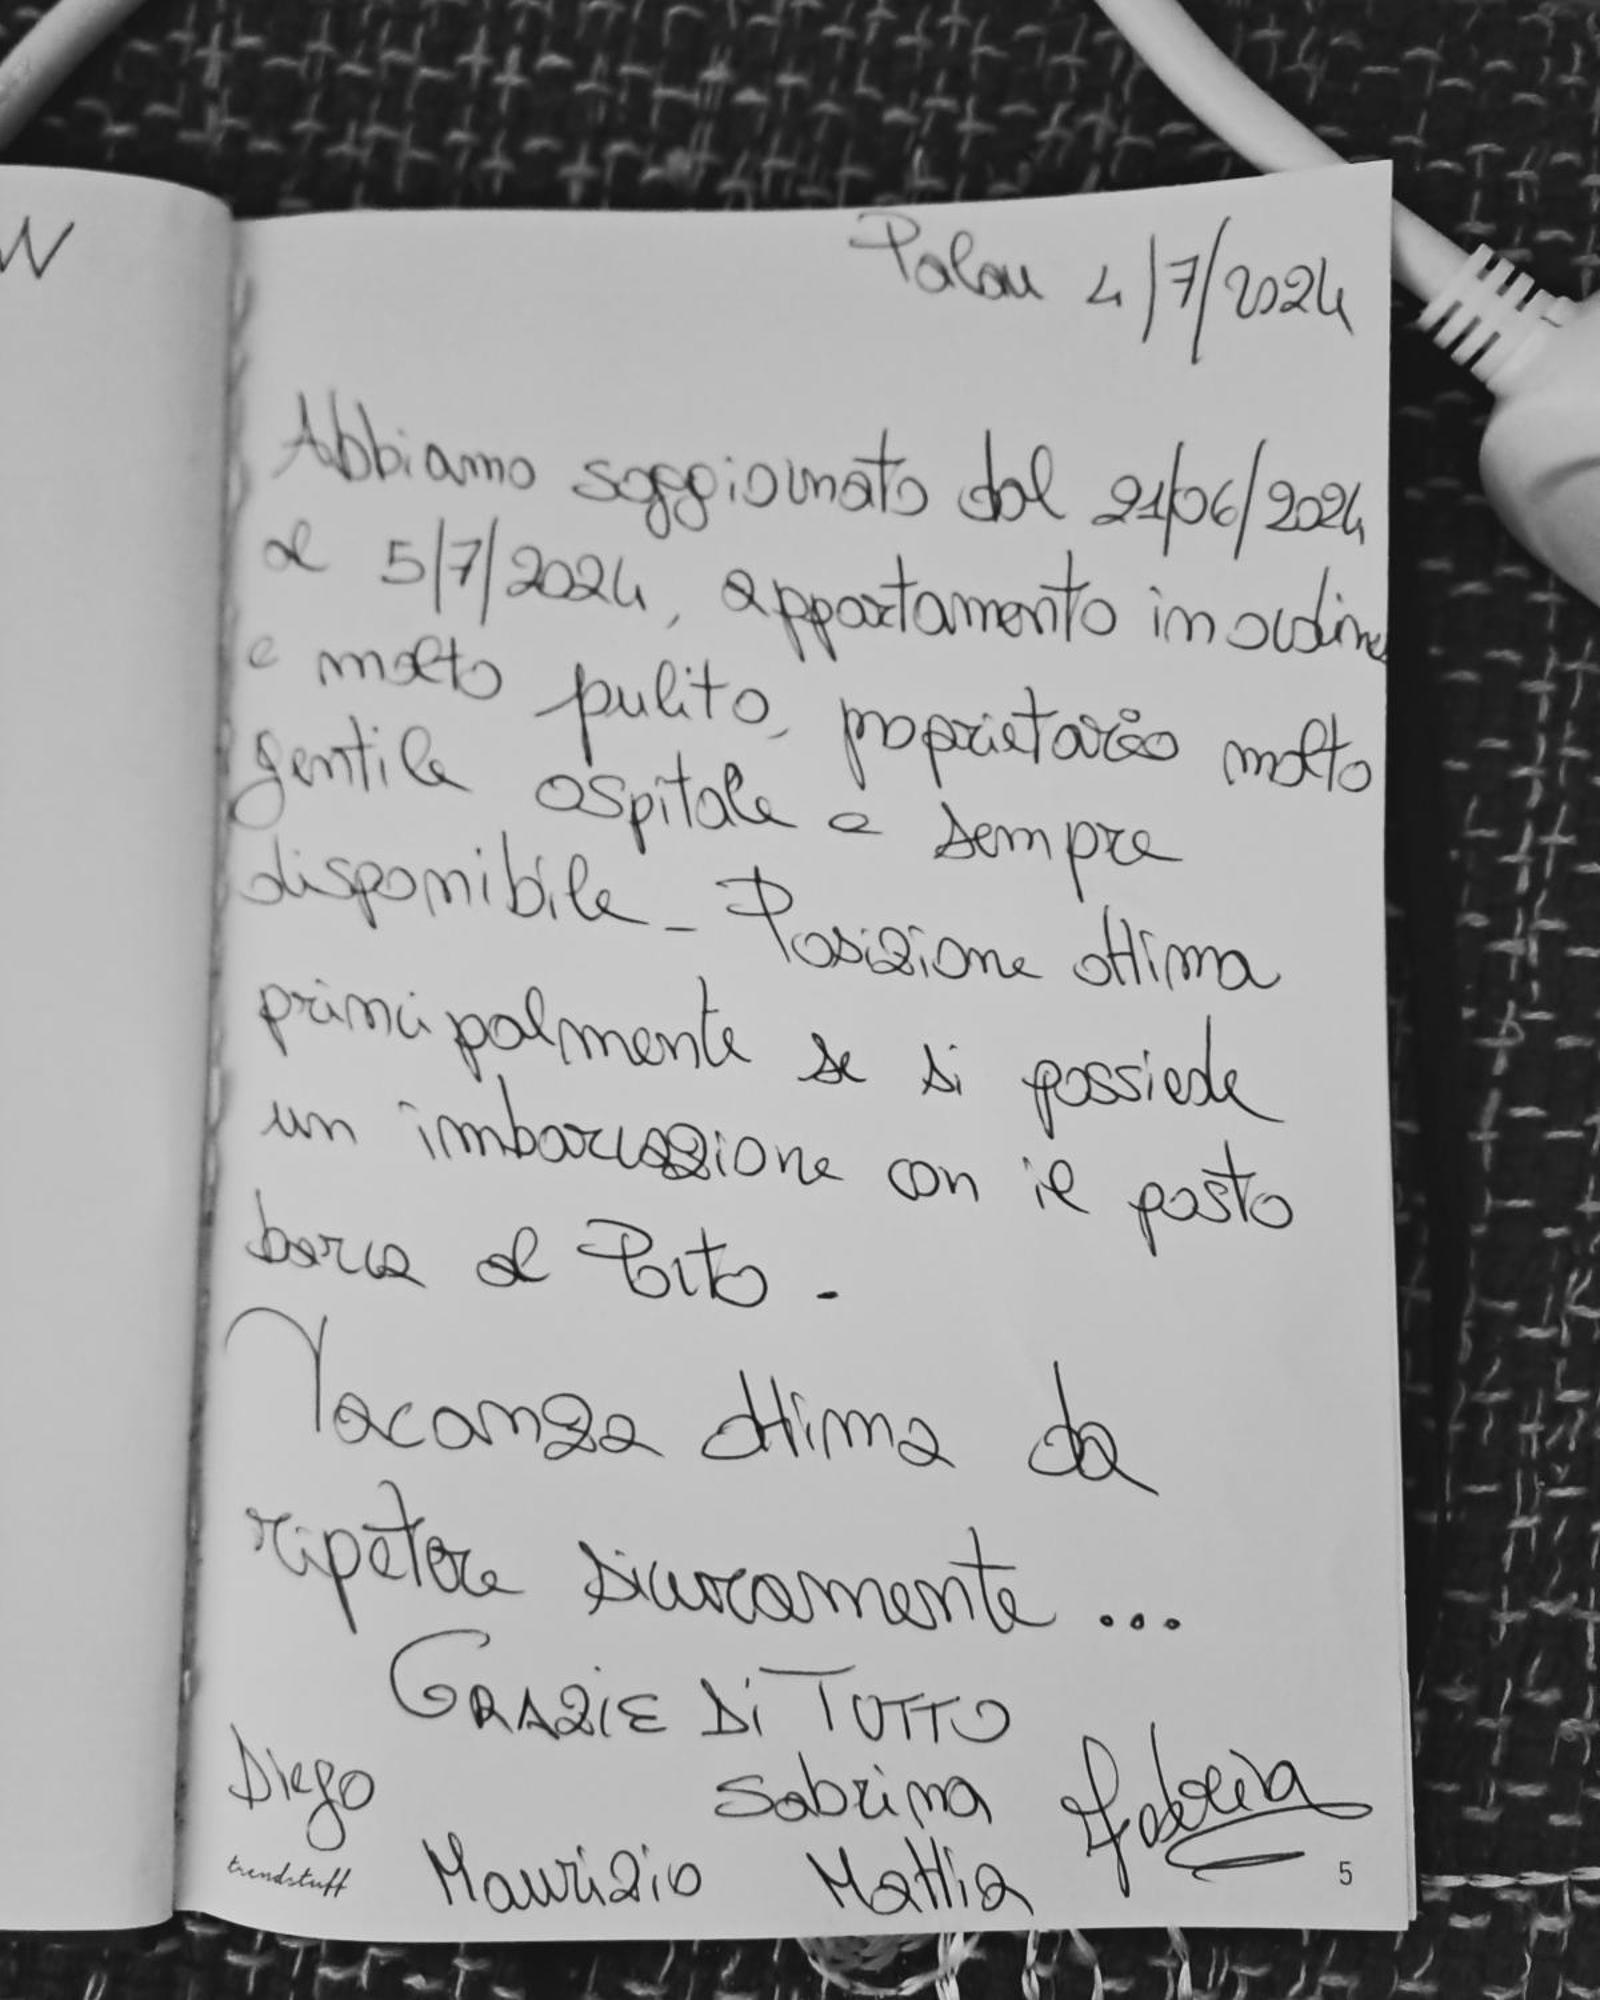 W
Palau 4/7/2024
Abbiamo soggiornato dal 21/06/2024
al 5/7/2024, appartamento in ordine
e molto pulito, proprietario molto
gentile ospitale e sempre
disponibile - Posizione ottima
principalmente se si possiede
un imbarcazione con il posto
barca al Porto -
Vacanza ottima da
ripetere sicuramente ...
GRAZIE Di TUTTO
Diego Sabrina
Maurizio Mattia
trendstuff 5